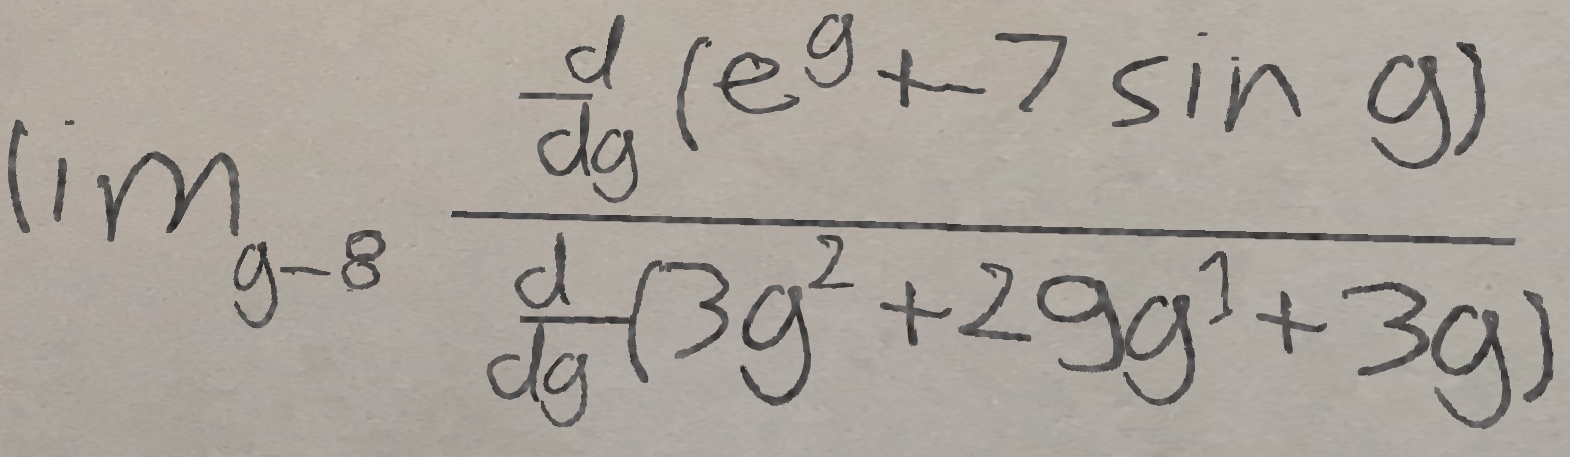 \lim_{g-8} \frac{\frac{d}{dg}(e^{g}+-7 \sin g)}{\frac{d}{dg}(3g^{2}+29g^{1}+3g)}